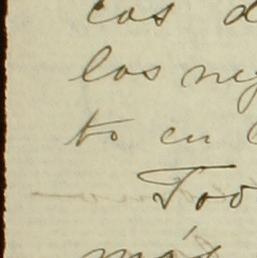 cos d
los neg
to en
Too
más